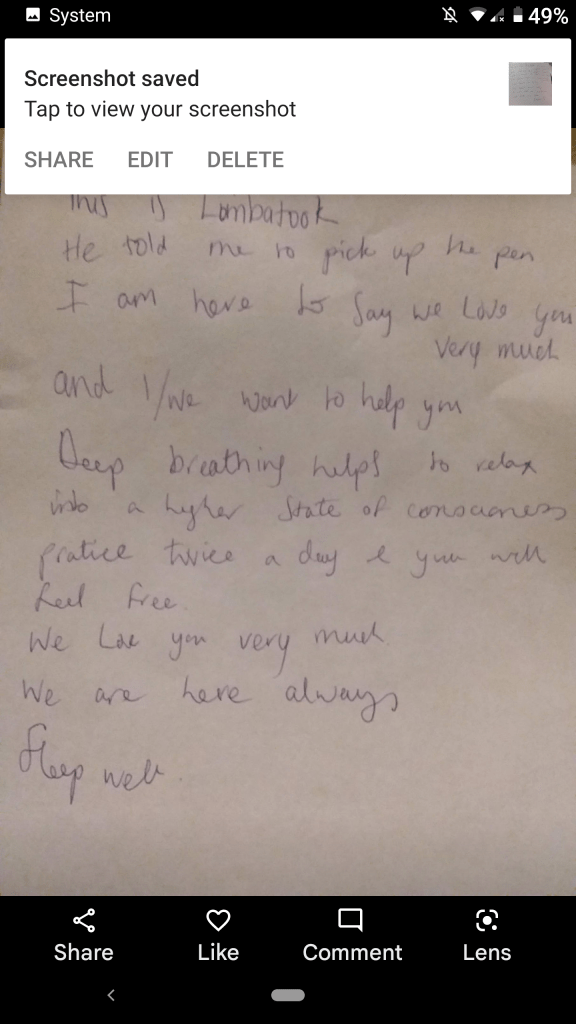 System
49%
Screenshot saved
Tap to view your screenshot
SHARE EDIT DELETE
This is Lombatook
He told me to pick up the pen
I am here to say we Love you
very much
and I/we want to help you
Deep breathing helps to relax
into a higher state of consciousness
pratice twice a day & you will
feel free.
We Love you very much.
We are here always
Sleep well.
Share Like Comment Lens